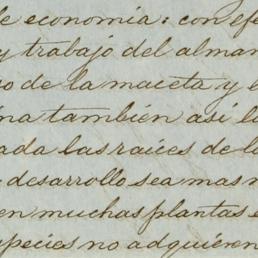 le economia: con efe
y trabajo del alman
so de la maceta y e
ina también así la
ada las raíces de la
desarrollo sea mas n
en muchas plantas e
species no adquieren